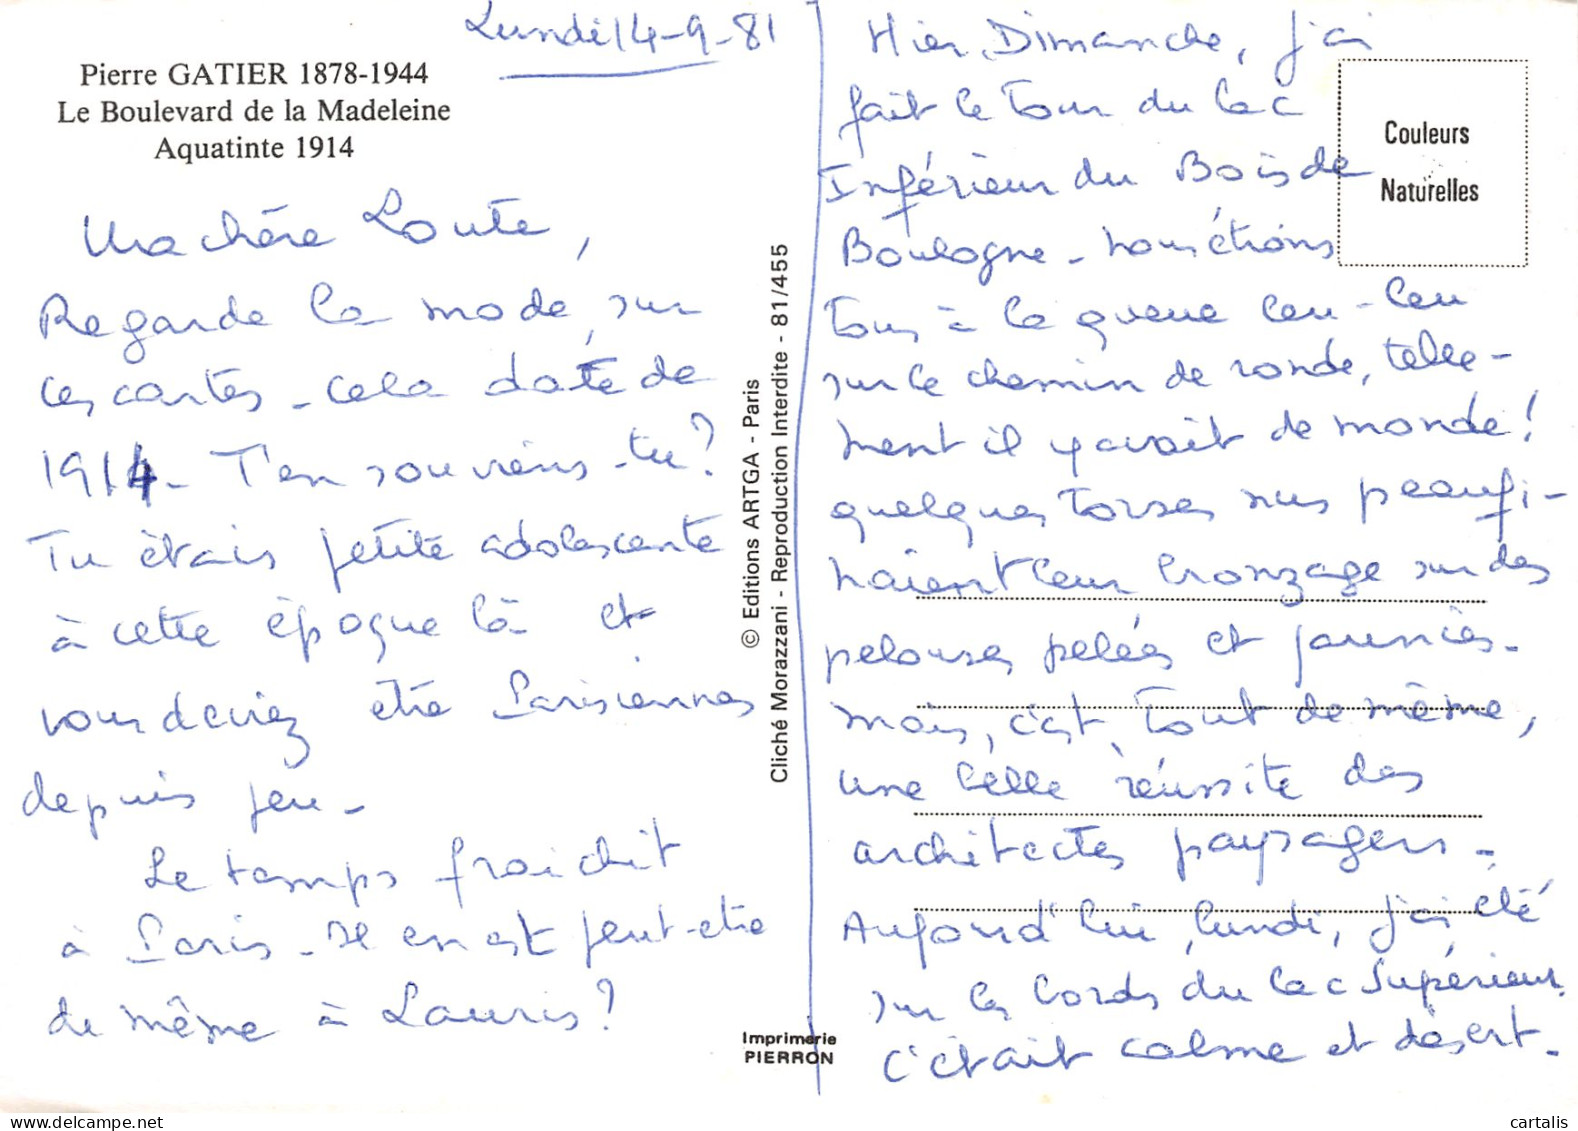 Lundi 14-9-81
Pierre GATIER 1878-1944
Le Boulevard de la Madeleine
Aquatinte 1914
Ma chère Loute,
Regarde la mode, sur
ces cartes - cela date de
1914 - T'en souviens-tu ?
Tu étais petite adolescente
à cette époque là et
vous deviez être Parisiennes
depuis peu -
Le temps fraichit
à Paris - Il en est peut-être
de même à Lauris ?
© Editions ARTGA - Paris
Cliché Morazzani - Reproduction Interdite - 81/455
Imprimerie
PIERRON
Hier, Dimanche, j'ai
fait le tour du lac
Inférieur du Bois de
Boulogne - nous étions
tous à la queue leu-leu
sur le chemin de ronde, telle-
ment il y avait de monde !
quelques torses nus peaufi-
naient leur bronzage sur des
pelouses pelées et jaunies -
mais, c'est, tout de même,
une belle réussite des
architectes paysagers -
Aujourd'hui, lundi, j'ai été
sur les bords du lac Supérieur
c'était calme et désert -
Couleurs
Naturelles
cartalis